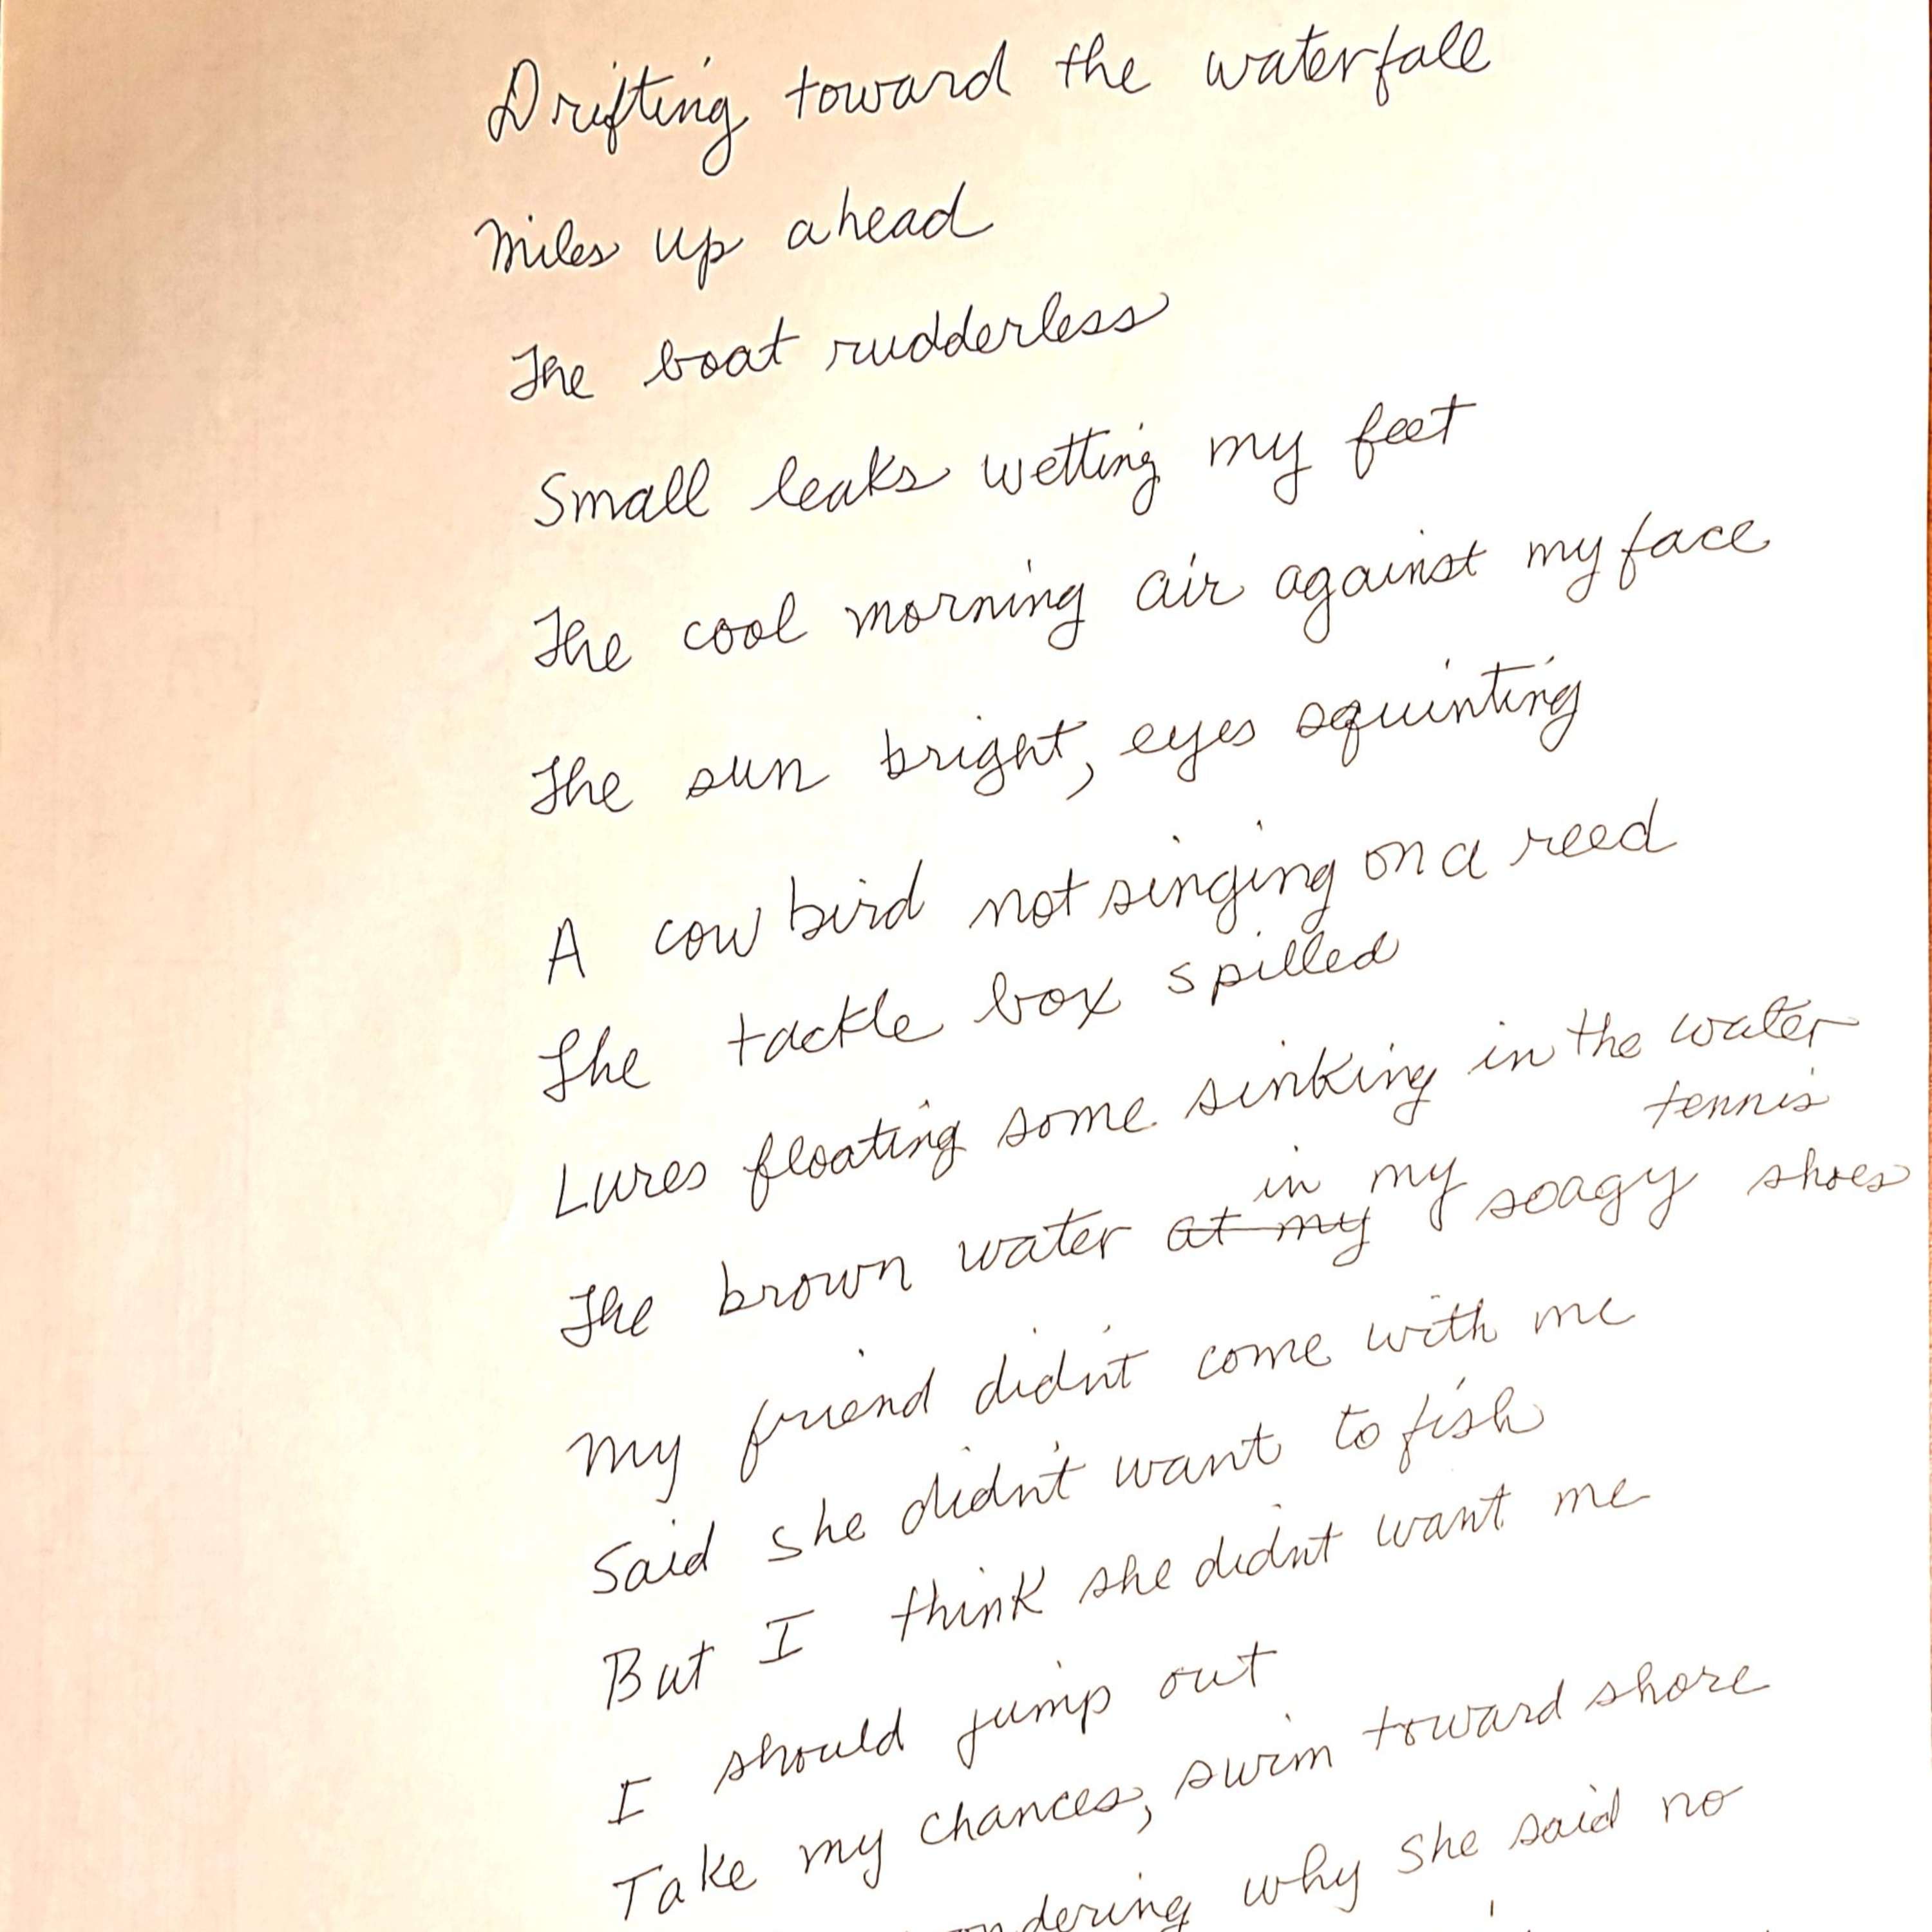 Drifting toward the waterfall
Miles up ahead
The boat rudderless
Small leaks wetting my feet
The cool morning air against my face
The sun bright, eyes squinting
A cow bird not singing on a reed
The tackle box spilled
Lures floating some sinking in the water
tennis
in my
The brown water at my soagy shoes
My friend didn't come with me
Said she didn't want to fish
But I think she didn't want me
I should jump out
Take my chances, swim toward shore
why she said no